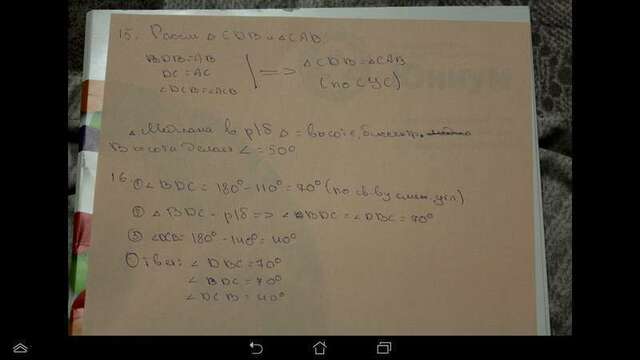 15. Рассм △ CDB и △CAB.
BDB=AB
DC=AC
∠DCB=∠ACB
=> △CDB=△CAB
(по СУС)
Медиана в р/б △ = высоте, биссектр.
Высота делает ∠=50°
16. ① ∠BDC = 180°-110°=70° (по св-ву смеж. угл)
② △ BDC - р/б => ∠BDC=∠DBC=70°
③ ∠DCB=180°-140°=40°
Ответ: ∠DBC=70°
∠BDC=70°
∠DCB=40°